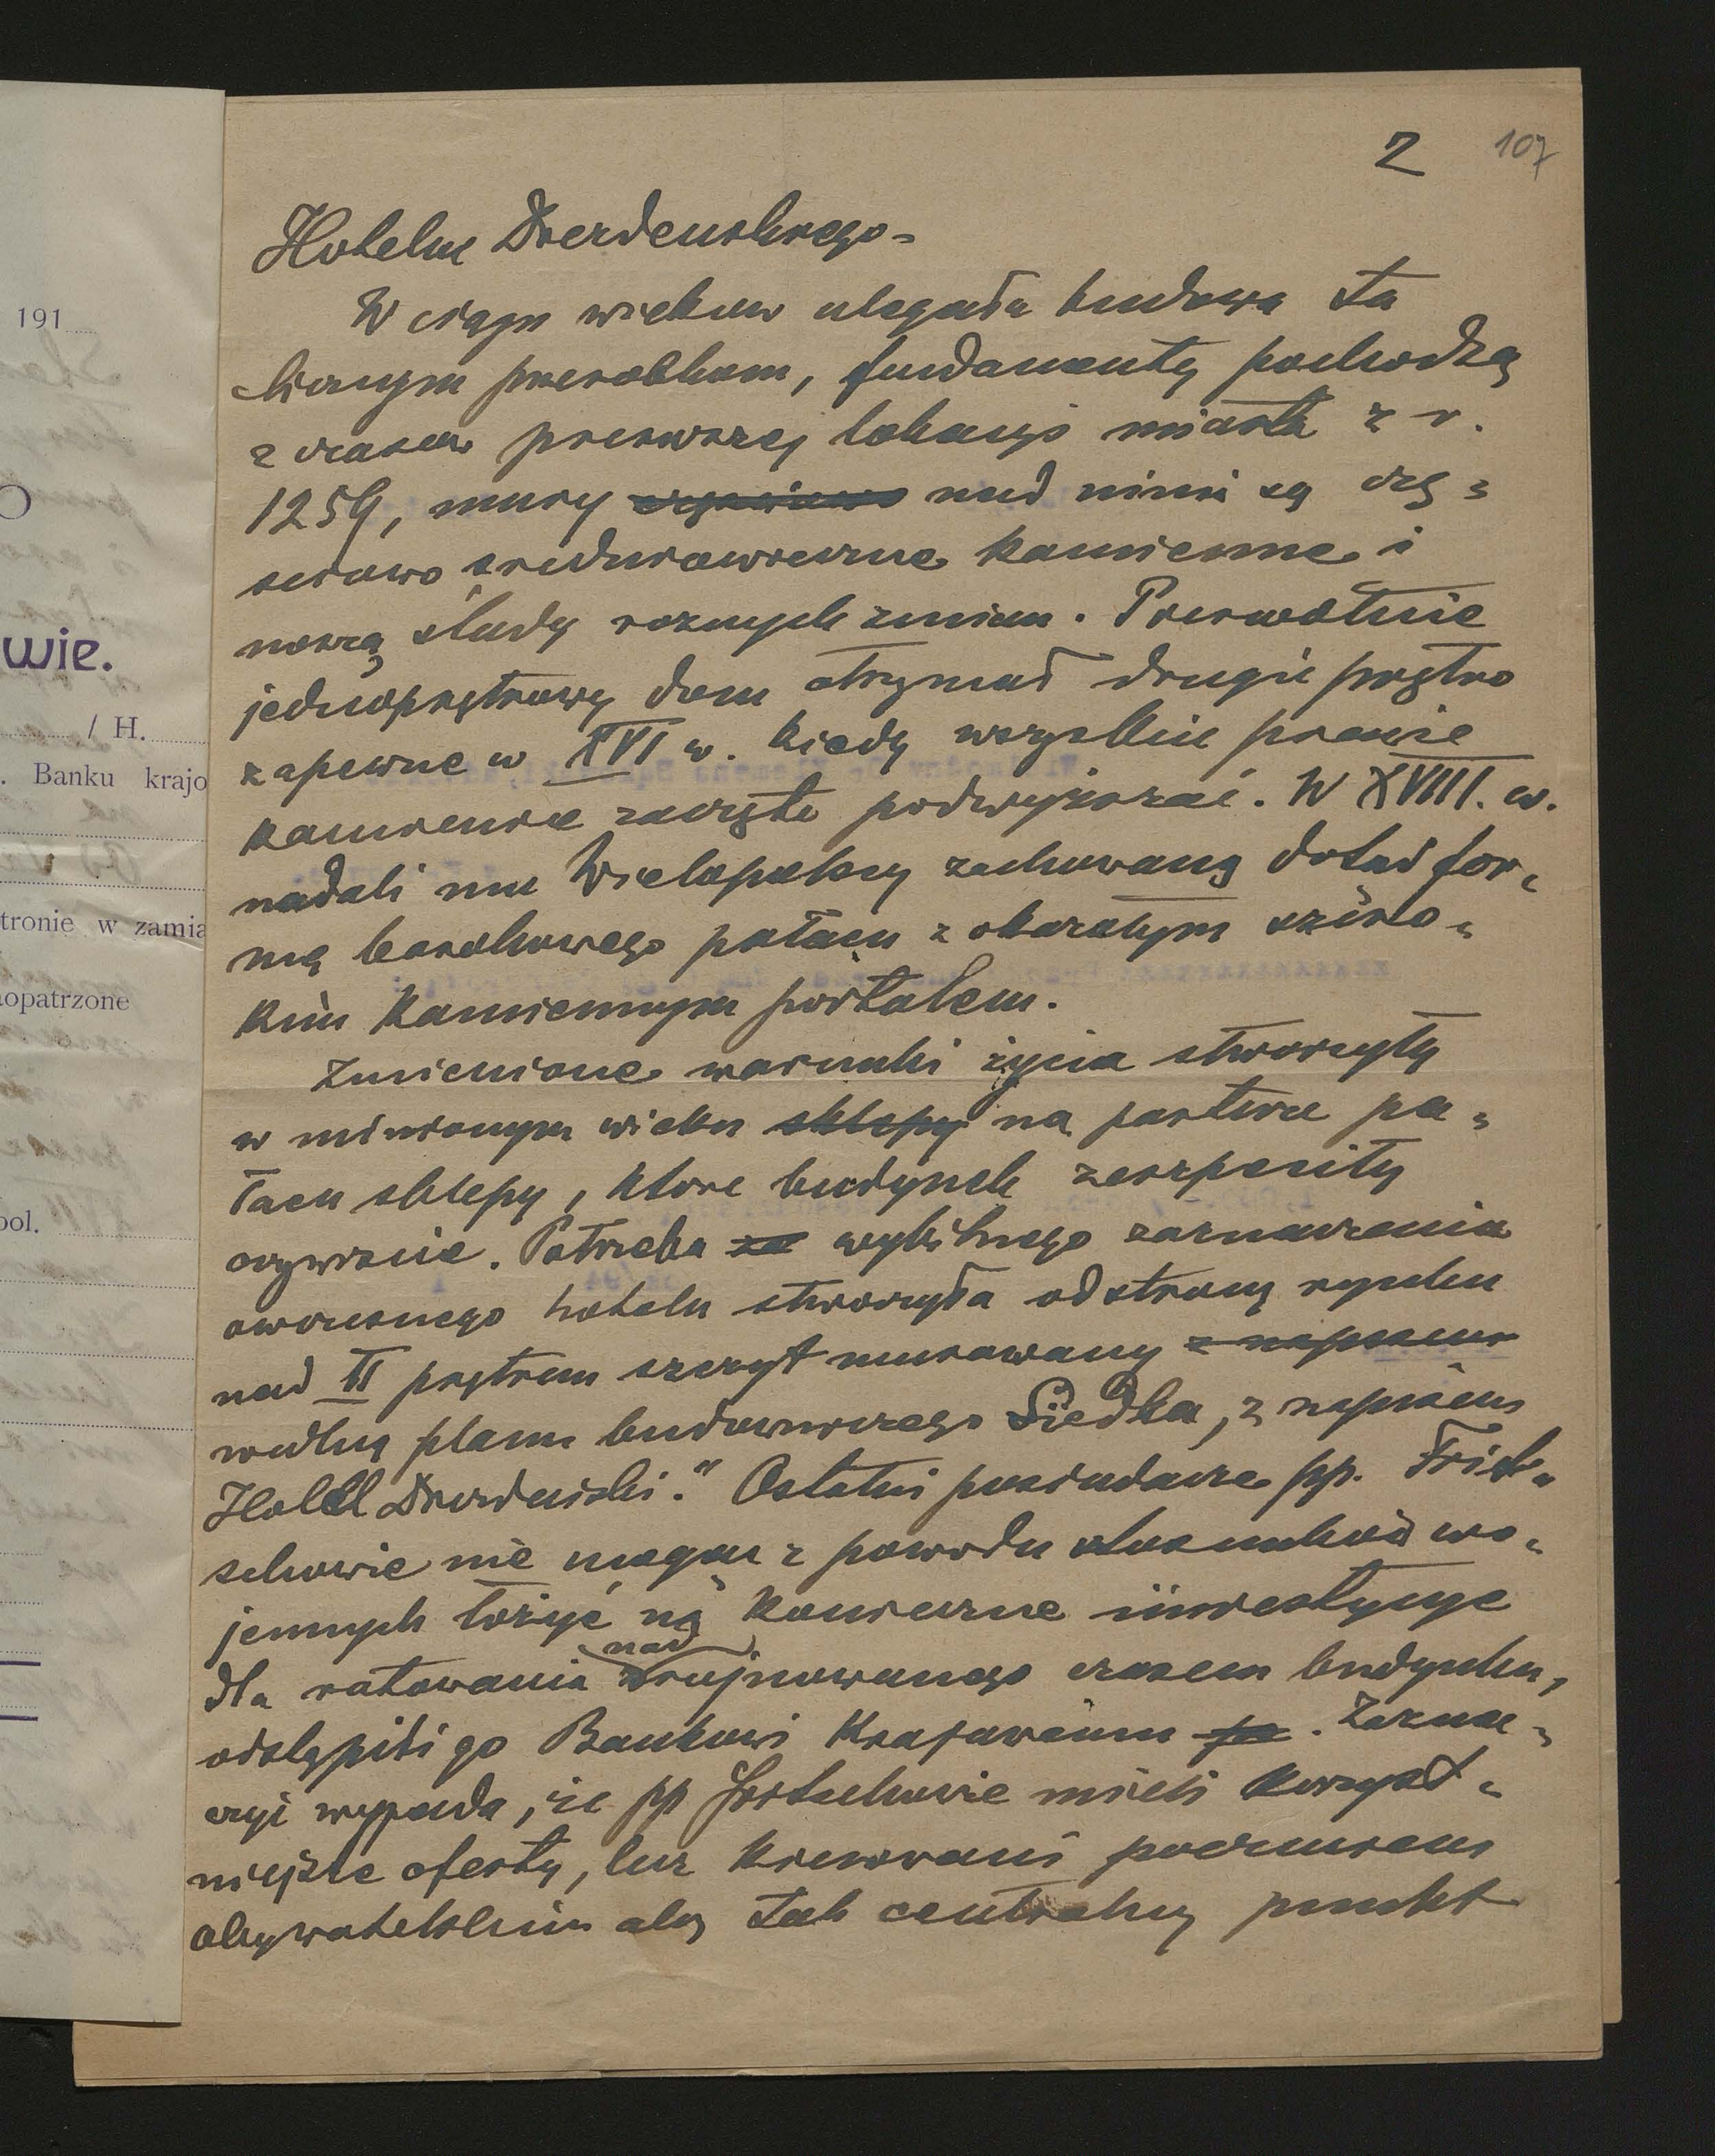 2 107
Hotelu Drezdeńskiego -
W ciągu wieków ulegała budowa ta
licznym przeróbkom, fundamenty pochodzą
z czasów pierwszej lokacyi miasta z r.
1259, mury nad nimi są czę=
ściowo średniowieczne kamienne i
noszą ślady roznych zmian. Pierwotnie
jednopiętrowy dom otrzymał drugie piętro
zapewne w XVI w. kiedy wszystkie prawie
kamienice zaczęto podwyższać. W XVIII. w.
nadali mu Wielopolscy zachowaną dotąd for=
mę barokowego pałacu z okazałym szero=
kim kamiennym portalem.
Zmienione warunki życia stworzyły
w minionym wieku sklepy na parterze pa=
łacu sklepy, które budynek zeszpeciły
oczywiście. Potrzeba za wybitnego zaznaczenia
ówczesnego hotelu stworzyła od strony rynku
nad II piętrem szczyt murowany z napisem
według planu budowniczego Siedka, z napisem
Hotel Drezdeński." Ostatni posiadacze pp. Frist=
schowie nie mogąc z powodu stosunków wo=
jennych łożyć na konieczne inwestycye
dla ratowania nad zrujnowanego czasem budynku,
odstąpili go Bankowi Krajowemu . Zazna=
czyć wypada, że pp Fritschowie mieli korzyst=
niejsze oferty, lecz kierowani poczuciem
obywatelskim aby tak centralny punkt
191
wie.
/ H.
. Banku krajo
tronie w zamia
aopatrzone
pol.